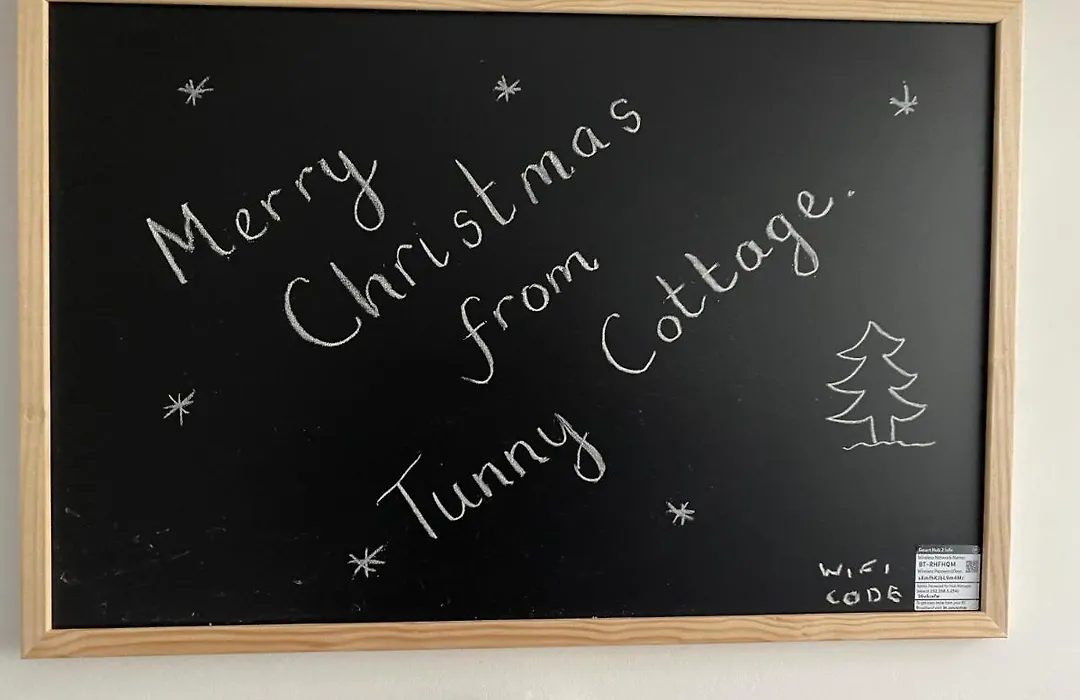 Merry
Christmas
from
Tunny Cottage.
WIFI
CODE
Smart Hub 2 Info
Wireless Network Name:
BT-RHFHQM